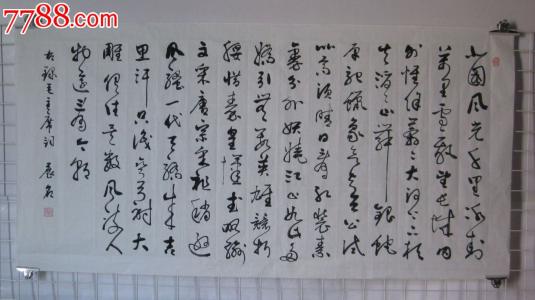 7788.com
北國风光千里冰封
萬里雪飘望长城内
外惟馀莽莽大河上下顿
失滔滔山舞银蛇
原驰蜡象欲与天公试
比高须晴日看红装素
裹分外妖娆江山如此多
娇引无数英雄竞折
腰惜秦皇汉武略输
文采唐宗宋祖稍逊
风骚一代天骄成吉
思汗只识弯弓射大
雕俱往矣数风流人
物还看今朝
右录毛主席词